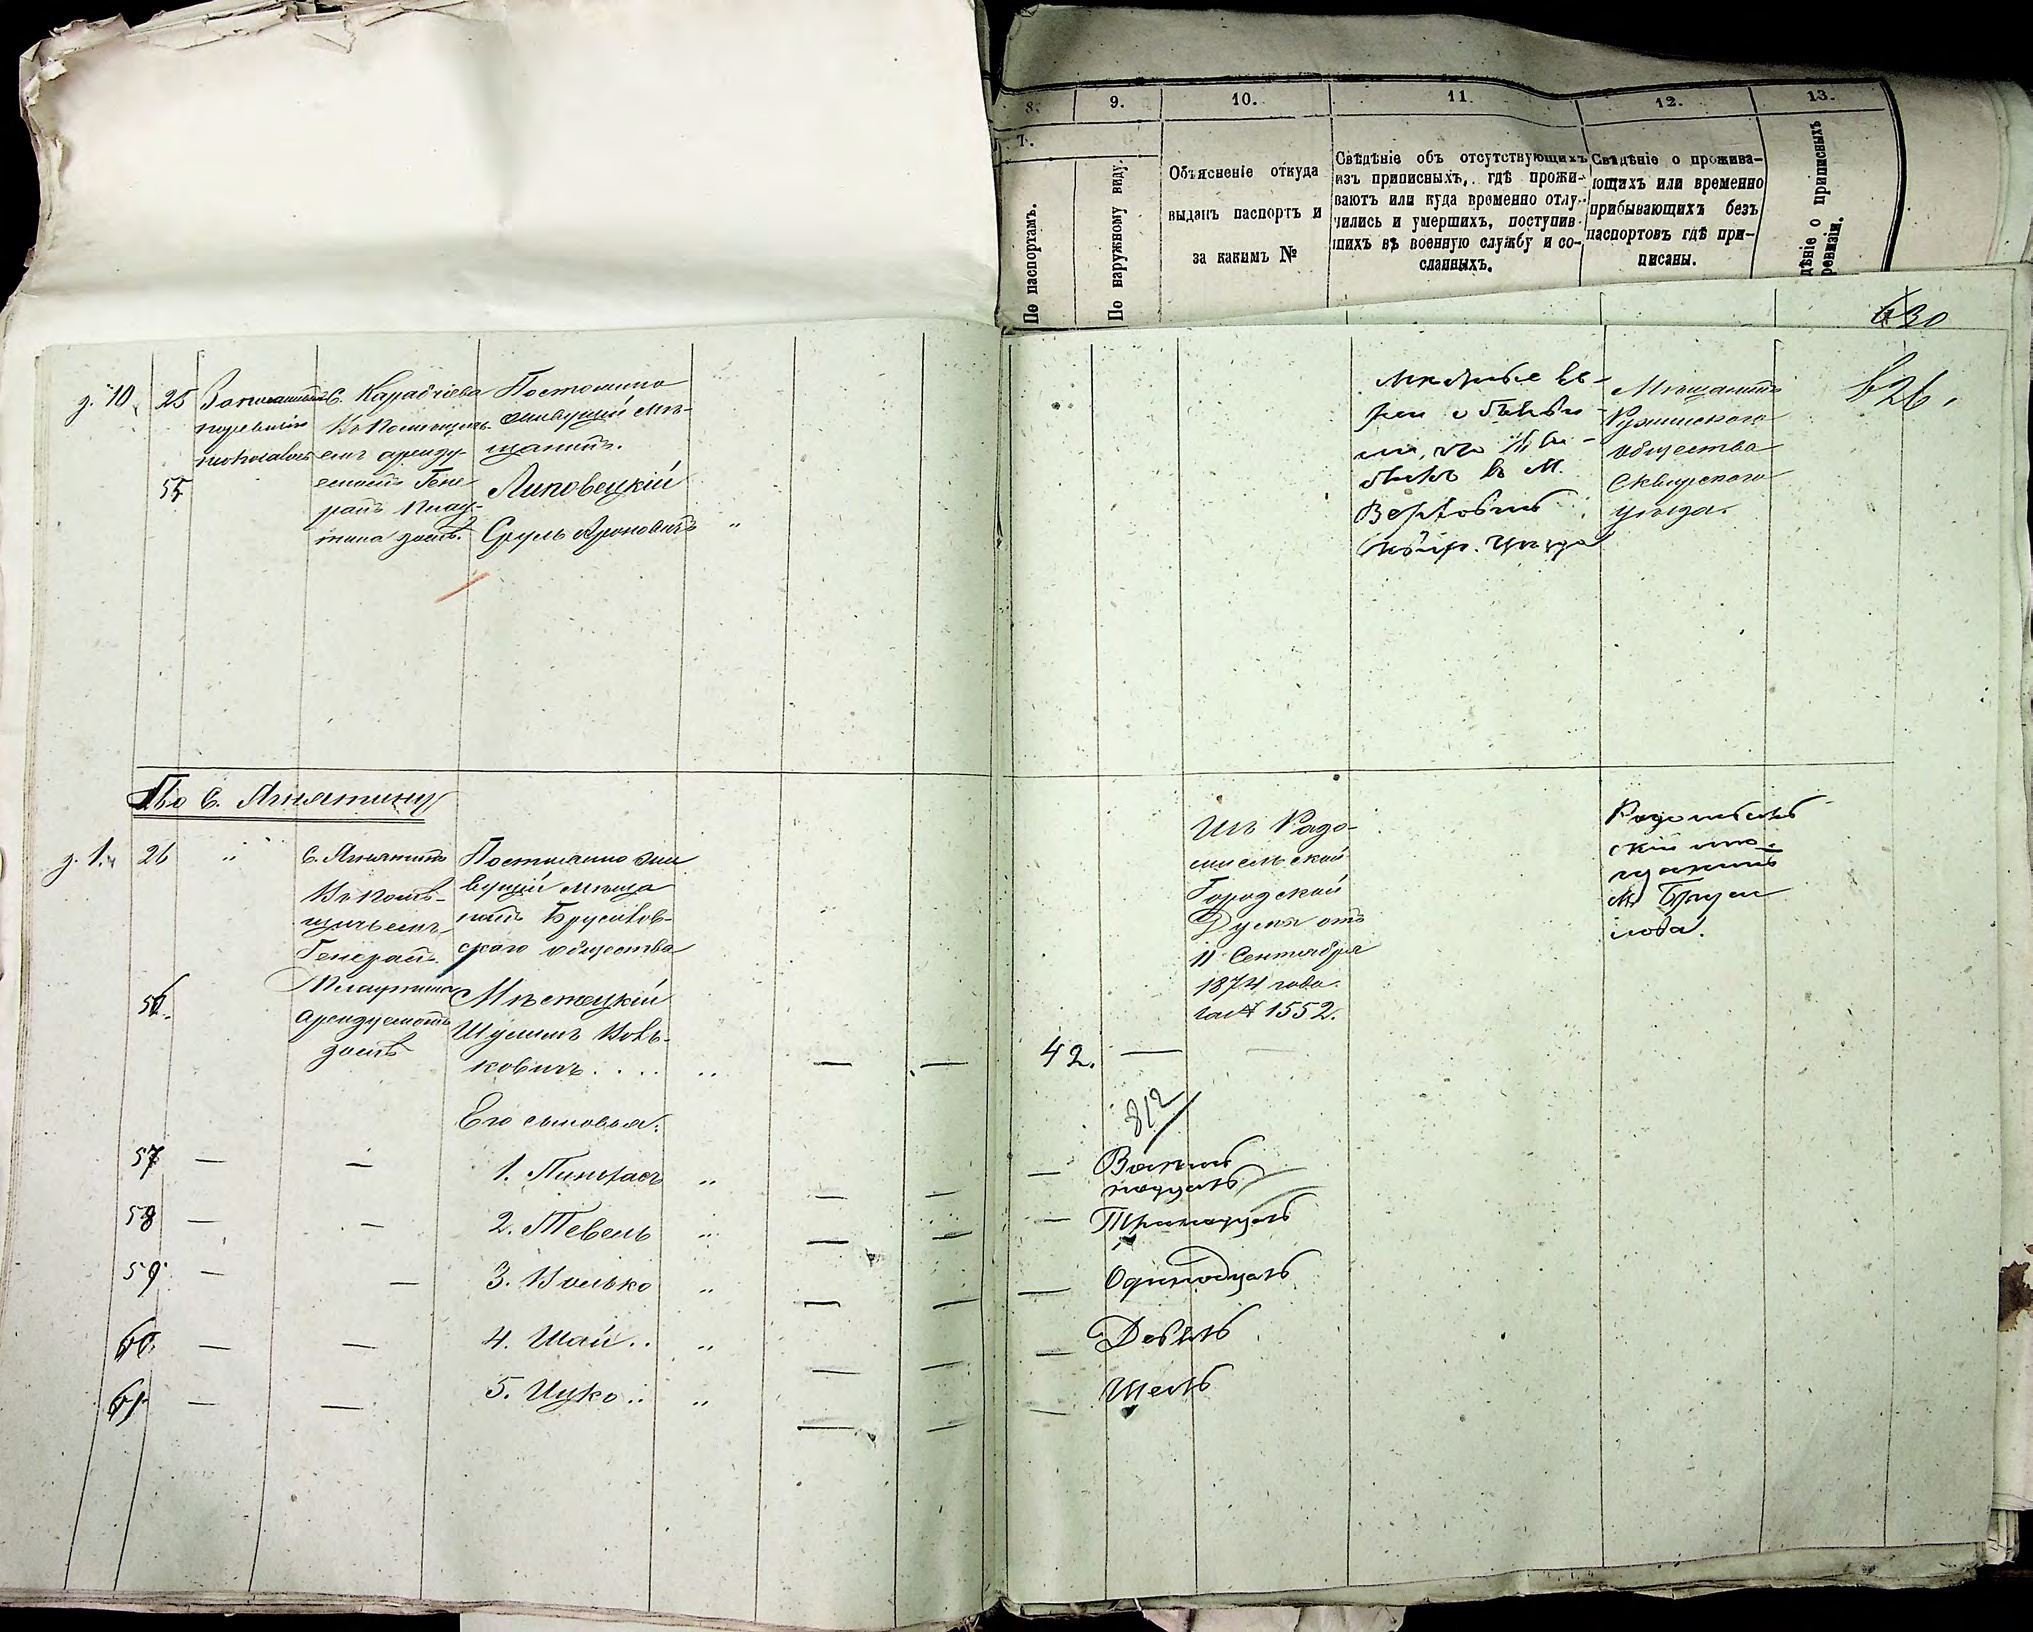 8.
9.
10.
11.
12.
13.
7.
По паспортамъ.
По наружному виду.
Объясненіе откуда
выданъ паспортъ и
за какимъ №
Свѣдѣніе объ отсутствующихъ
изъ приписныхъ, гдѣ прожи-
ваютъ или куда временно отлу-
чились и умершихъ, поступив-
шихъ въ военную службу и со-
сланныхъ.
Свѣдѣніе о прожива-
ющихъ или временно
прибывающихъ безъ
паспортовъ гдѣ при-
писаны.
дѣніе о приписныхъ
ревизіи.
630
д. 10.
25
55
С. Карабчіева
Въ
аренду-
Гене
раль
Постоянно
живущій мѣ-
щанинъ.
Липовецкій
Сруль Ароновичъ "
въ М.
уѣзда
Мѣщанинъ
Ружинскаго
общества
Сквирскаго
уѣзда.
626.
По С. Ягнятину
д. 1.
26
"
56.
С. Ягнятинъ
Въ помѣ-
щичьемъ
Генерал.
Плаутина
арендуемомъ
домѣ
Постоянно жи
вущій мѣща
нинъ Брусилов-
скаго общества
Мѣстецкій
Шулимъ Вовь-
ковичъ . . . . "
42. —
Изъ Радо-
мысльской
Городской
Думы отъ
11 Сентября
1874 года.
за № 1552.
Радомысль
скій мѣ-
щанинъ
м. Бруси
лова.
Его сыновья:
8/2
57 — — 1. Пинхасъ " — — —
58 — — 2. Тевель " — — — Тринадцать
59 — — 3. Волько " — — — Одинадцать
60 — — 4. Шай .. " — — — Девять
61 — — 5. Ицко .. " — — — Шесть